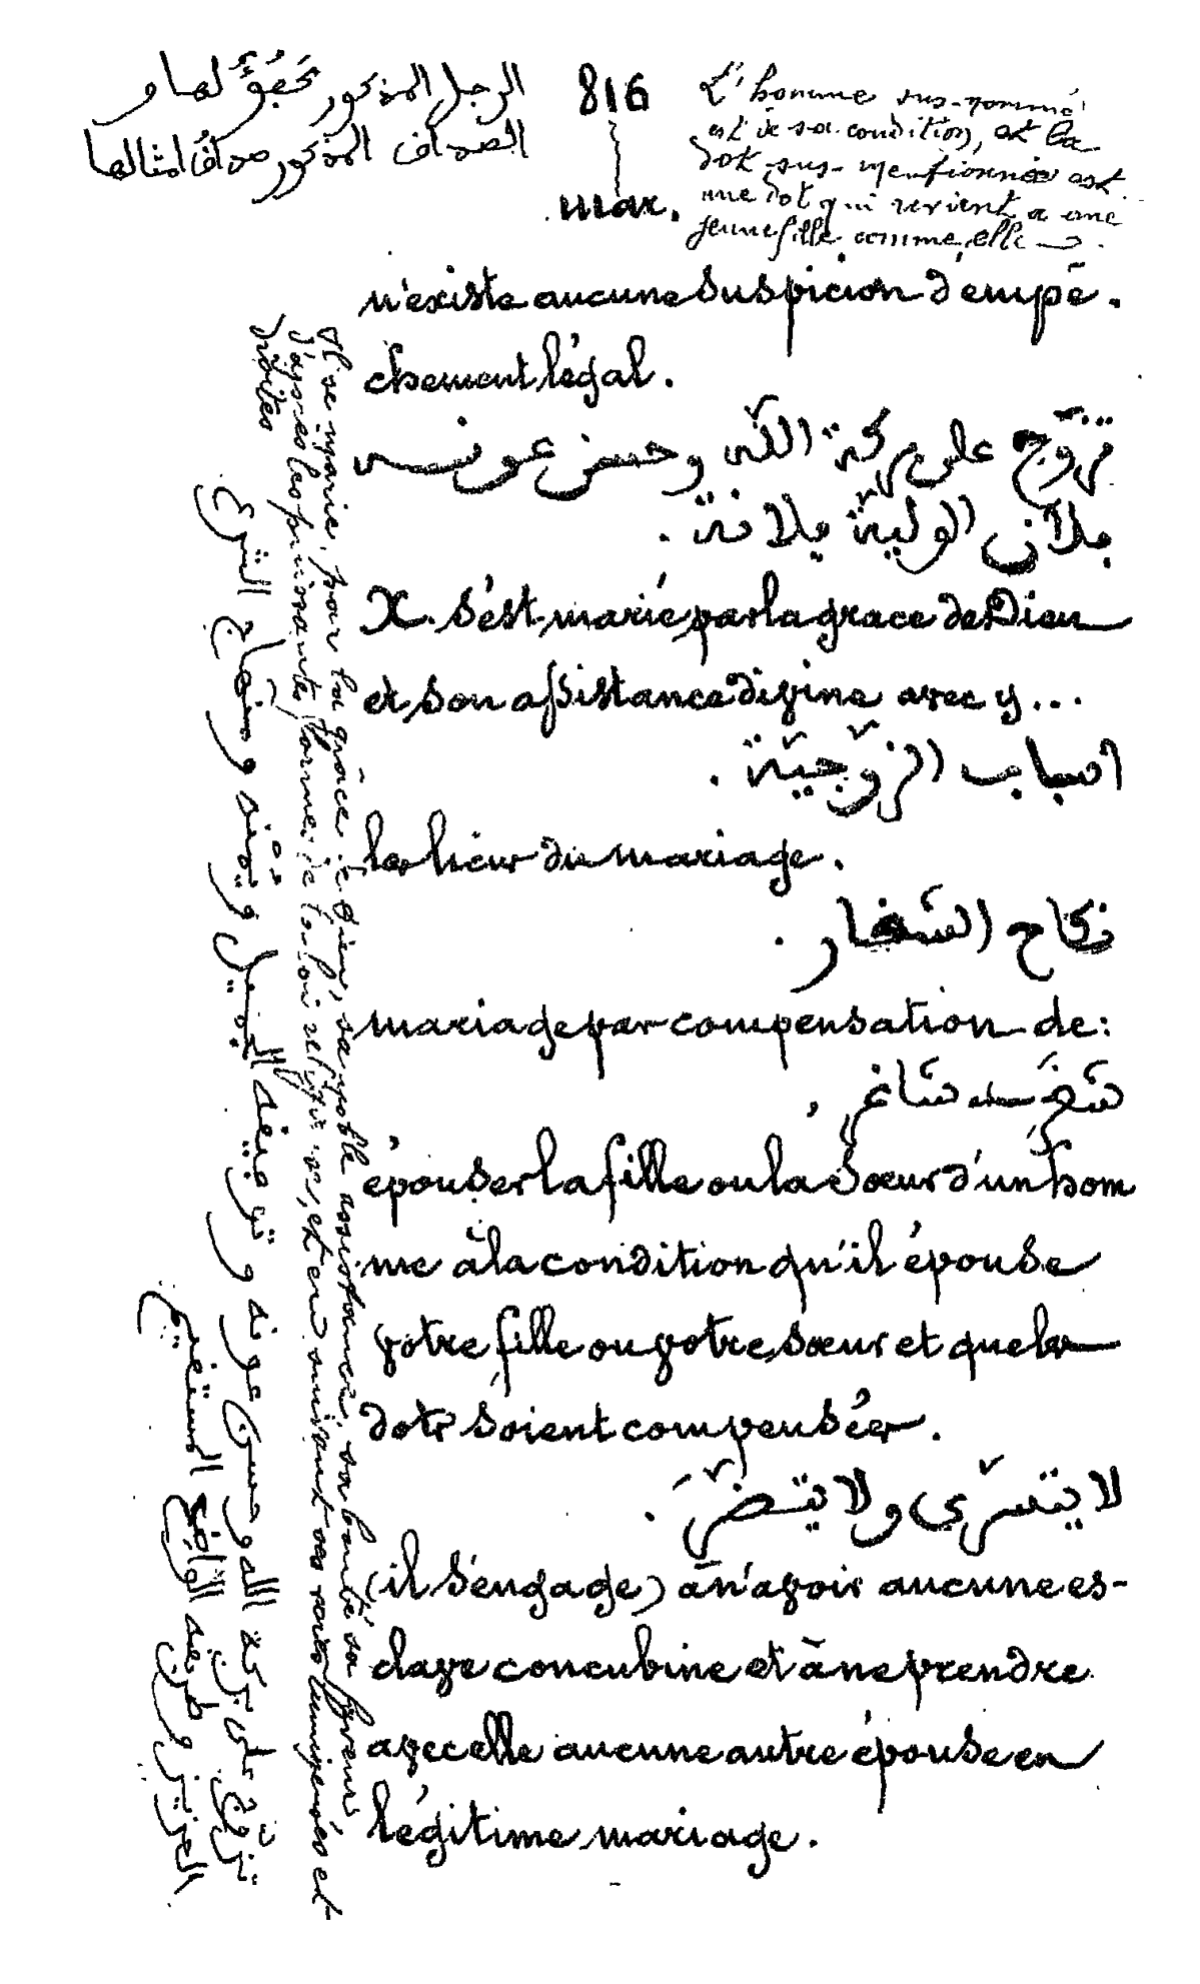 الرجل المذكور كفؤ لها و
الصداق المذكور صداق امثالها
816
mar.
L'homme sus-nommé
est de sa condition, et la
dot sus-mentionnée est
une dot qui revient a une
jeune fille comme elle
n'existe aucune suspicion d'empê-
chement légal.
تزوّج على بركة اللّه وحسن عونه
فلان الوليّة فلانة .
X. s'est marié par la grace de Dieu
et son assistance divine avec y...
اسباب الزوّجيّة .
les lieur du mariage.
نكاح الشغار .
mariage par compensation de:
شغر شاغر ,
épouser la fille ou la sœur d'un hom
me à la condition qu'il épouse
votre fille ou votre sœur et que les
dots soient compensées.
لا يتسرّى ولا يتضرّ .
(il s'engage) à n'avoir aucune es-
clave concubine et à ne prendre
avec elle aucune autre épouse en
légitime mariage.
Il se marie, par la grâce de Dieu, sa noble assistance, sa bonté, sa faveur,
d'après les puissantes normes de la loi religieuse, et en suivant ses voies lumineuses et
droites
تزوّج على بركة الله وحسن عونه و توفيقه الجميل ويمنه ومنهاج الشرع
العزيز و طريقه الواضح المستقيم